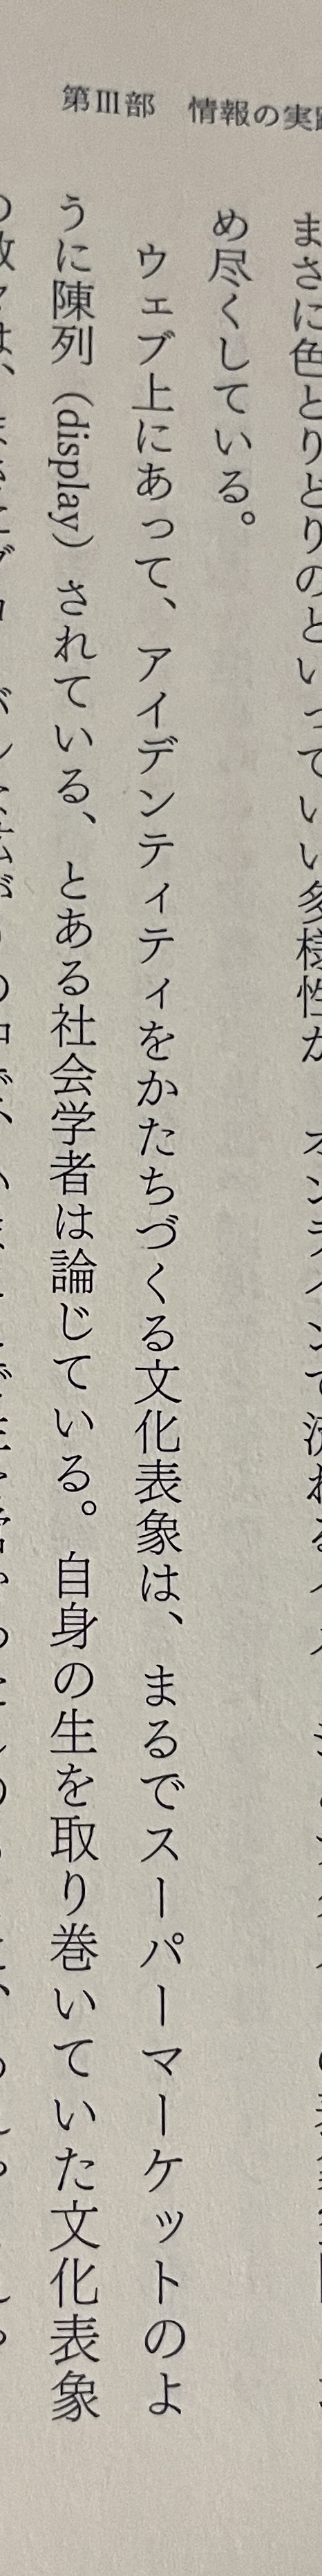 第Ⅲ部 情報の実
まさに色とりどりのといっていい多様性が
め尽くしている。
ウェブ上にあって、アイデンティティをかたちづくる文化表象は、まるでスーパーマーケットのよ
うに陳列（display）されている、とある社会学者は論じている。自身の生を取り巻いていた文化表象